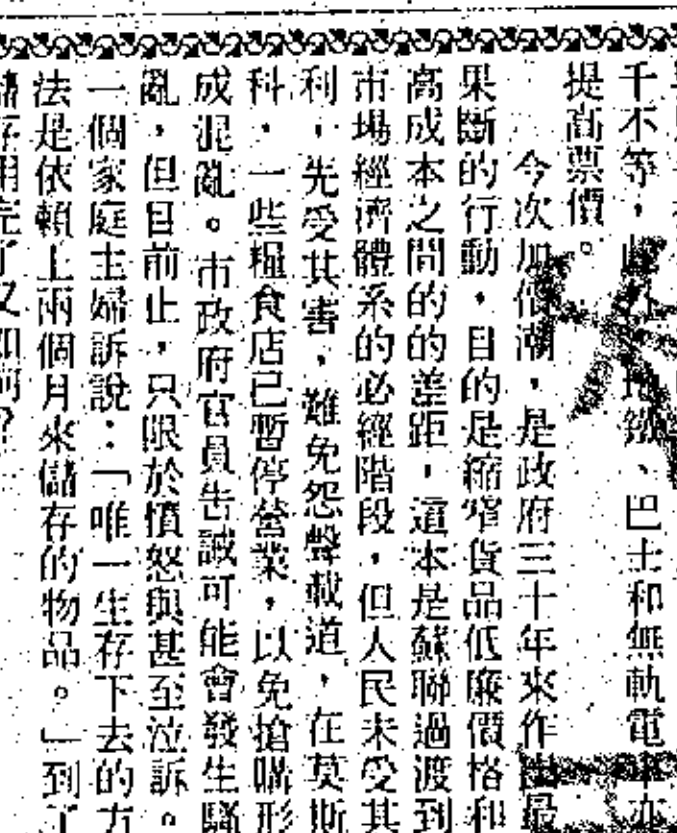 千不等，此外，地鐵、巴士和無軌電車亦
提高票價。
今次加價潮，是政府三十年來作出最
果斷的行動，目的是縮窄貨品低廉價格和
高成本之間的的差距，這本是蘇聯過渡到
市場經濟體系的必經階段，但人民未受其
利，先受其害，難免怨聲載道，在莫斯
科，一些糧食店已暫停營業，以免搶購形
成混亂。市政府官員告誡可能會發生騷
亂，但目前止，只限於憤怒與甚至泣訴。
一個家庭主婦訴說：「唯一生存下去的方
法是依賴上兩個月來儲存的物品。」到了
儲存用完了又如何？